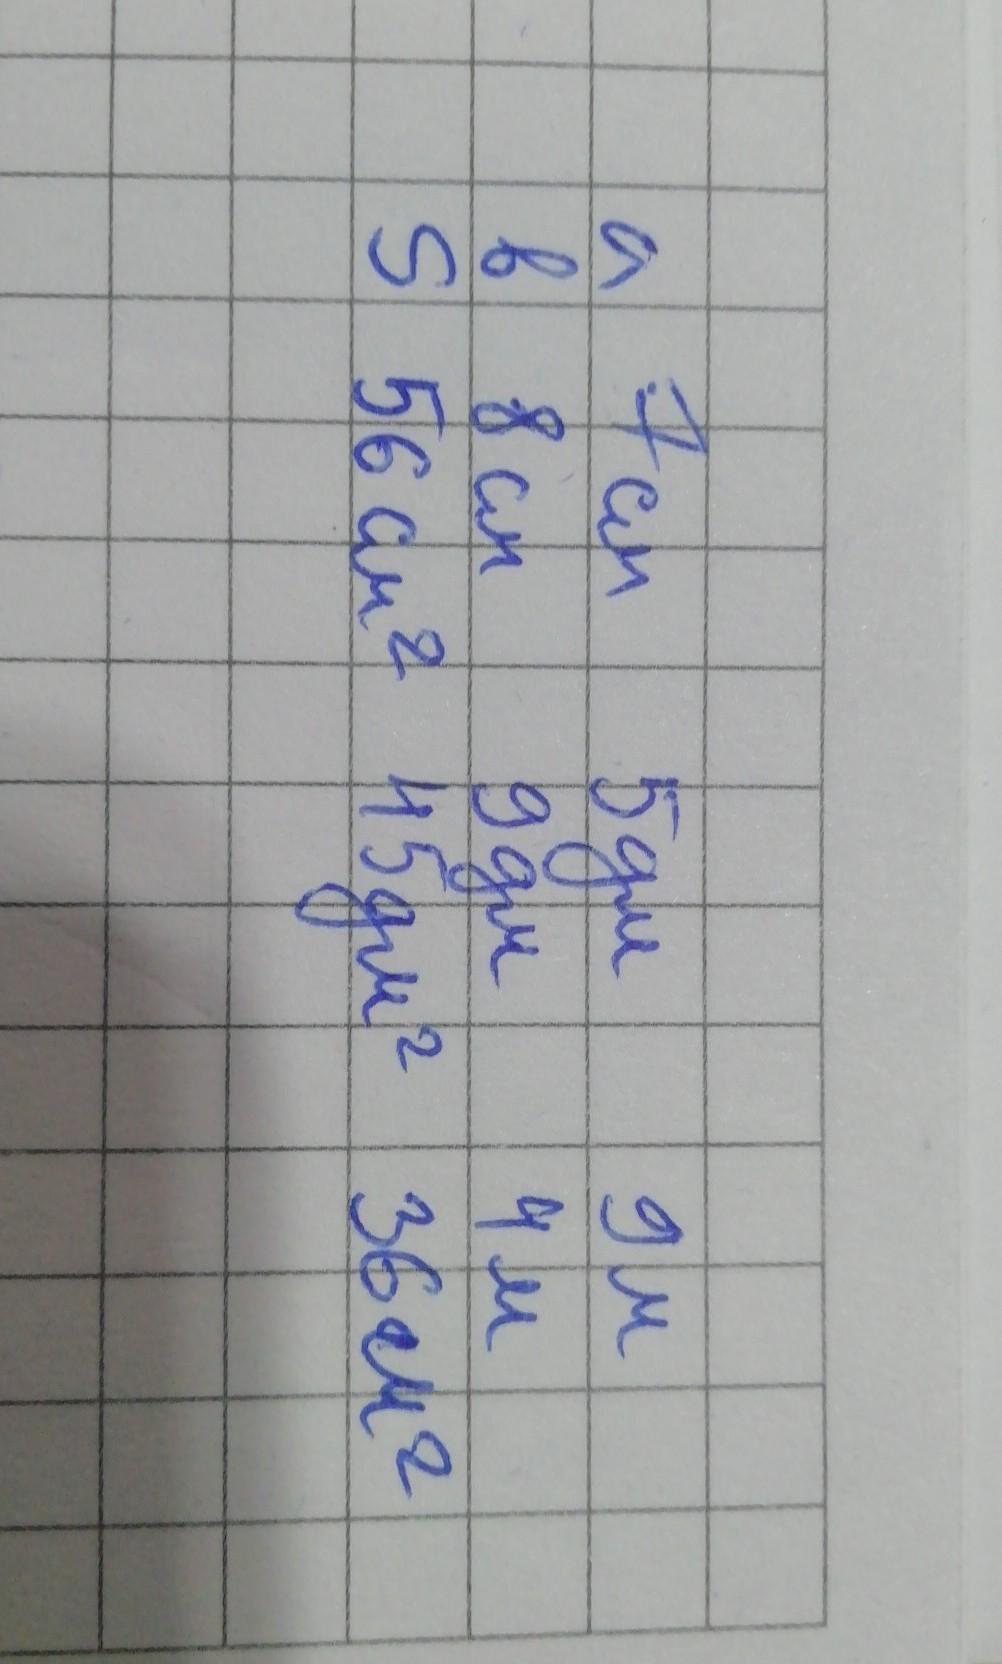 а 7 см 5 дм 9 м
в 8 см 9 дм 4 м
S 56 см² 45 дм² 36 см²